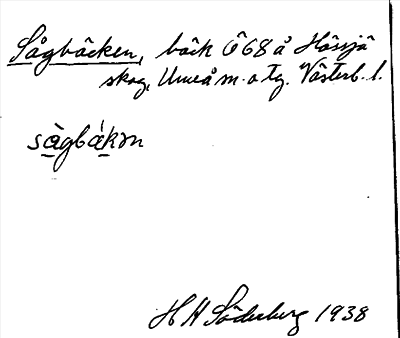 Sågbäcken, bäck Ö 68 å Hössjö
skog, Umeå m. o tg. Västerb. l.
sàgbákən
H H Söderberg 1938